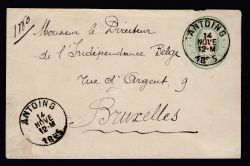 ANTOING
14
NOVE
12-M
Monsieur le Directeur
de l'Indépendance Belge
Rue d'Argent, 9
Bruxelles
ANTOING
14
NOVE
12-M